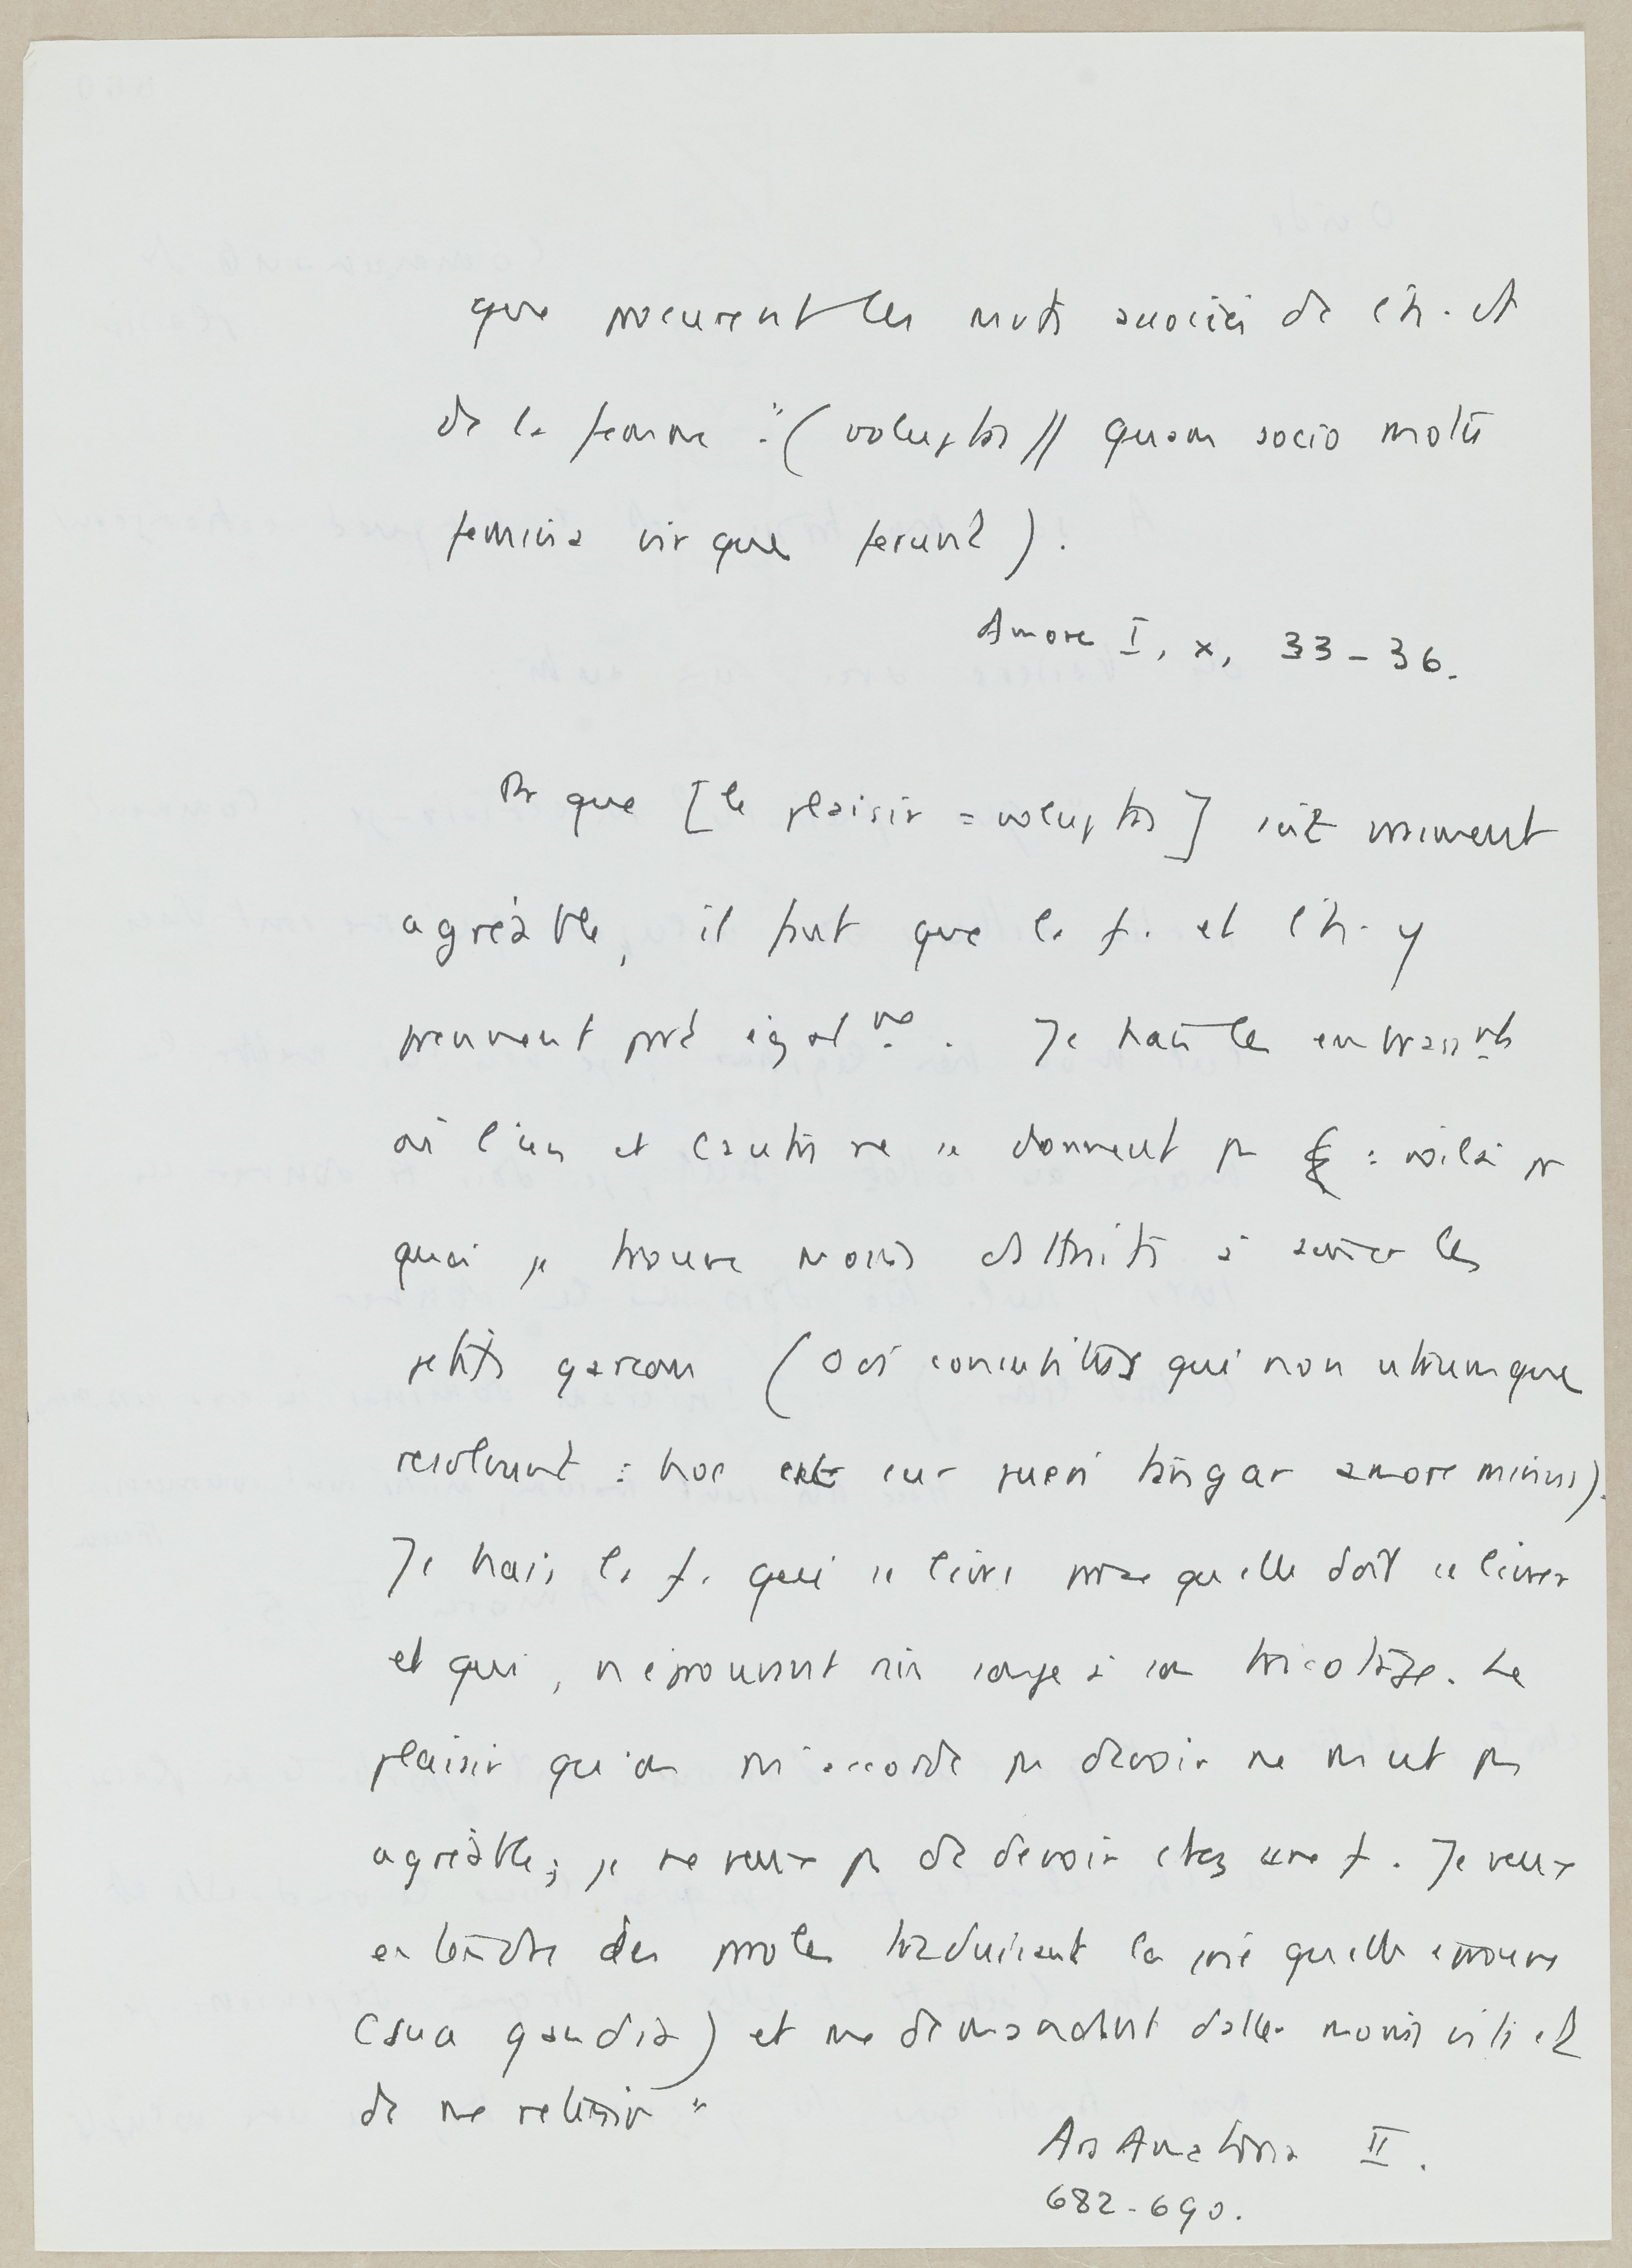 que procurent les mvts associés de l'h. et
de la femme :" (voluptas // quam socio motu
femina virque ferunt).
Amore I, x, 33-36.
Pr que [le plaisir = voluptas] soit vraiment
agréable, il faut que la f. et l'h. y
prennent part égalmt. Je hais les embrassmts
où l'un et l'autre ne se donnent pas : voilà pr
quoi je trouve moins d'attraits à aimer les
petits garcons (Odi concubitus qui non utrumque
resolvunt : hoc est cur pueri tangar amore minus).
Je hais la f. qui se livre parce qu'elle doit se livrer
et qui, n'éprouvant rien songe à son tricotage. Le
plaisir qu'on m'accorde par devoir ne m'est pas
agréable; je ne veux pas de devoir chez une f. Je veux
entendre des paroles traduisant la joie qu'elle éprouve
(sua gaudia) et me demandant d'aller moins vite et
de me retenir "
Ars Amatoria II.
682-690.